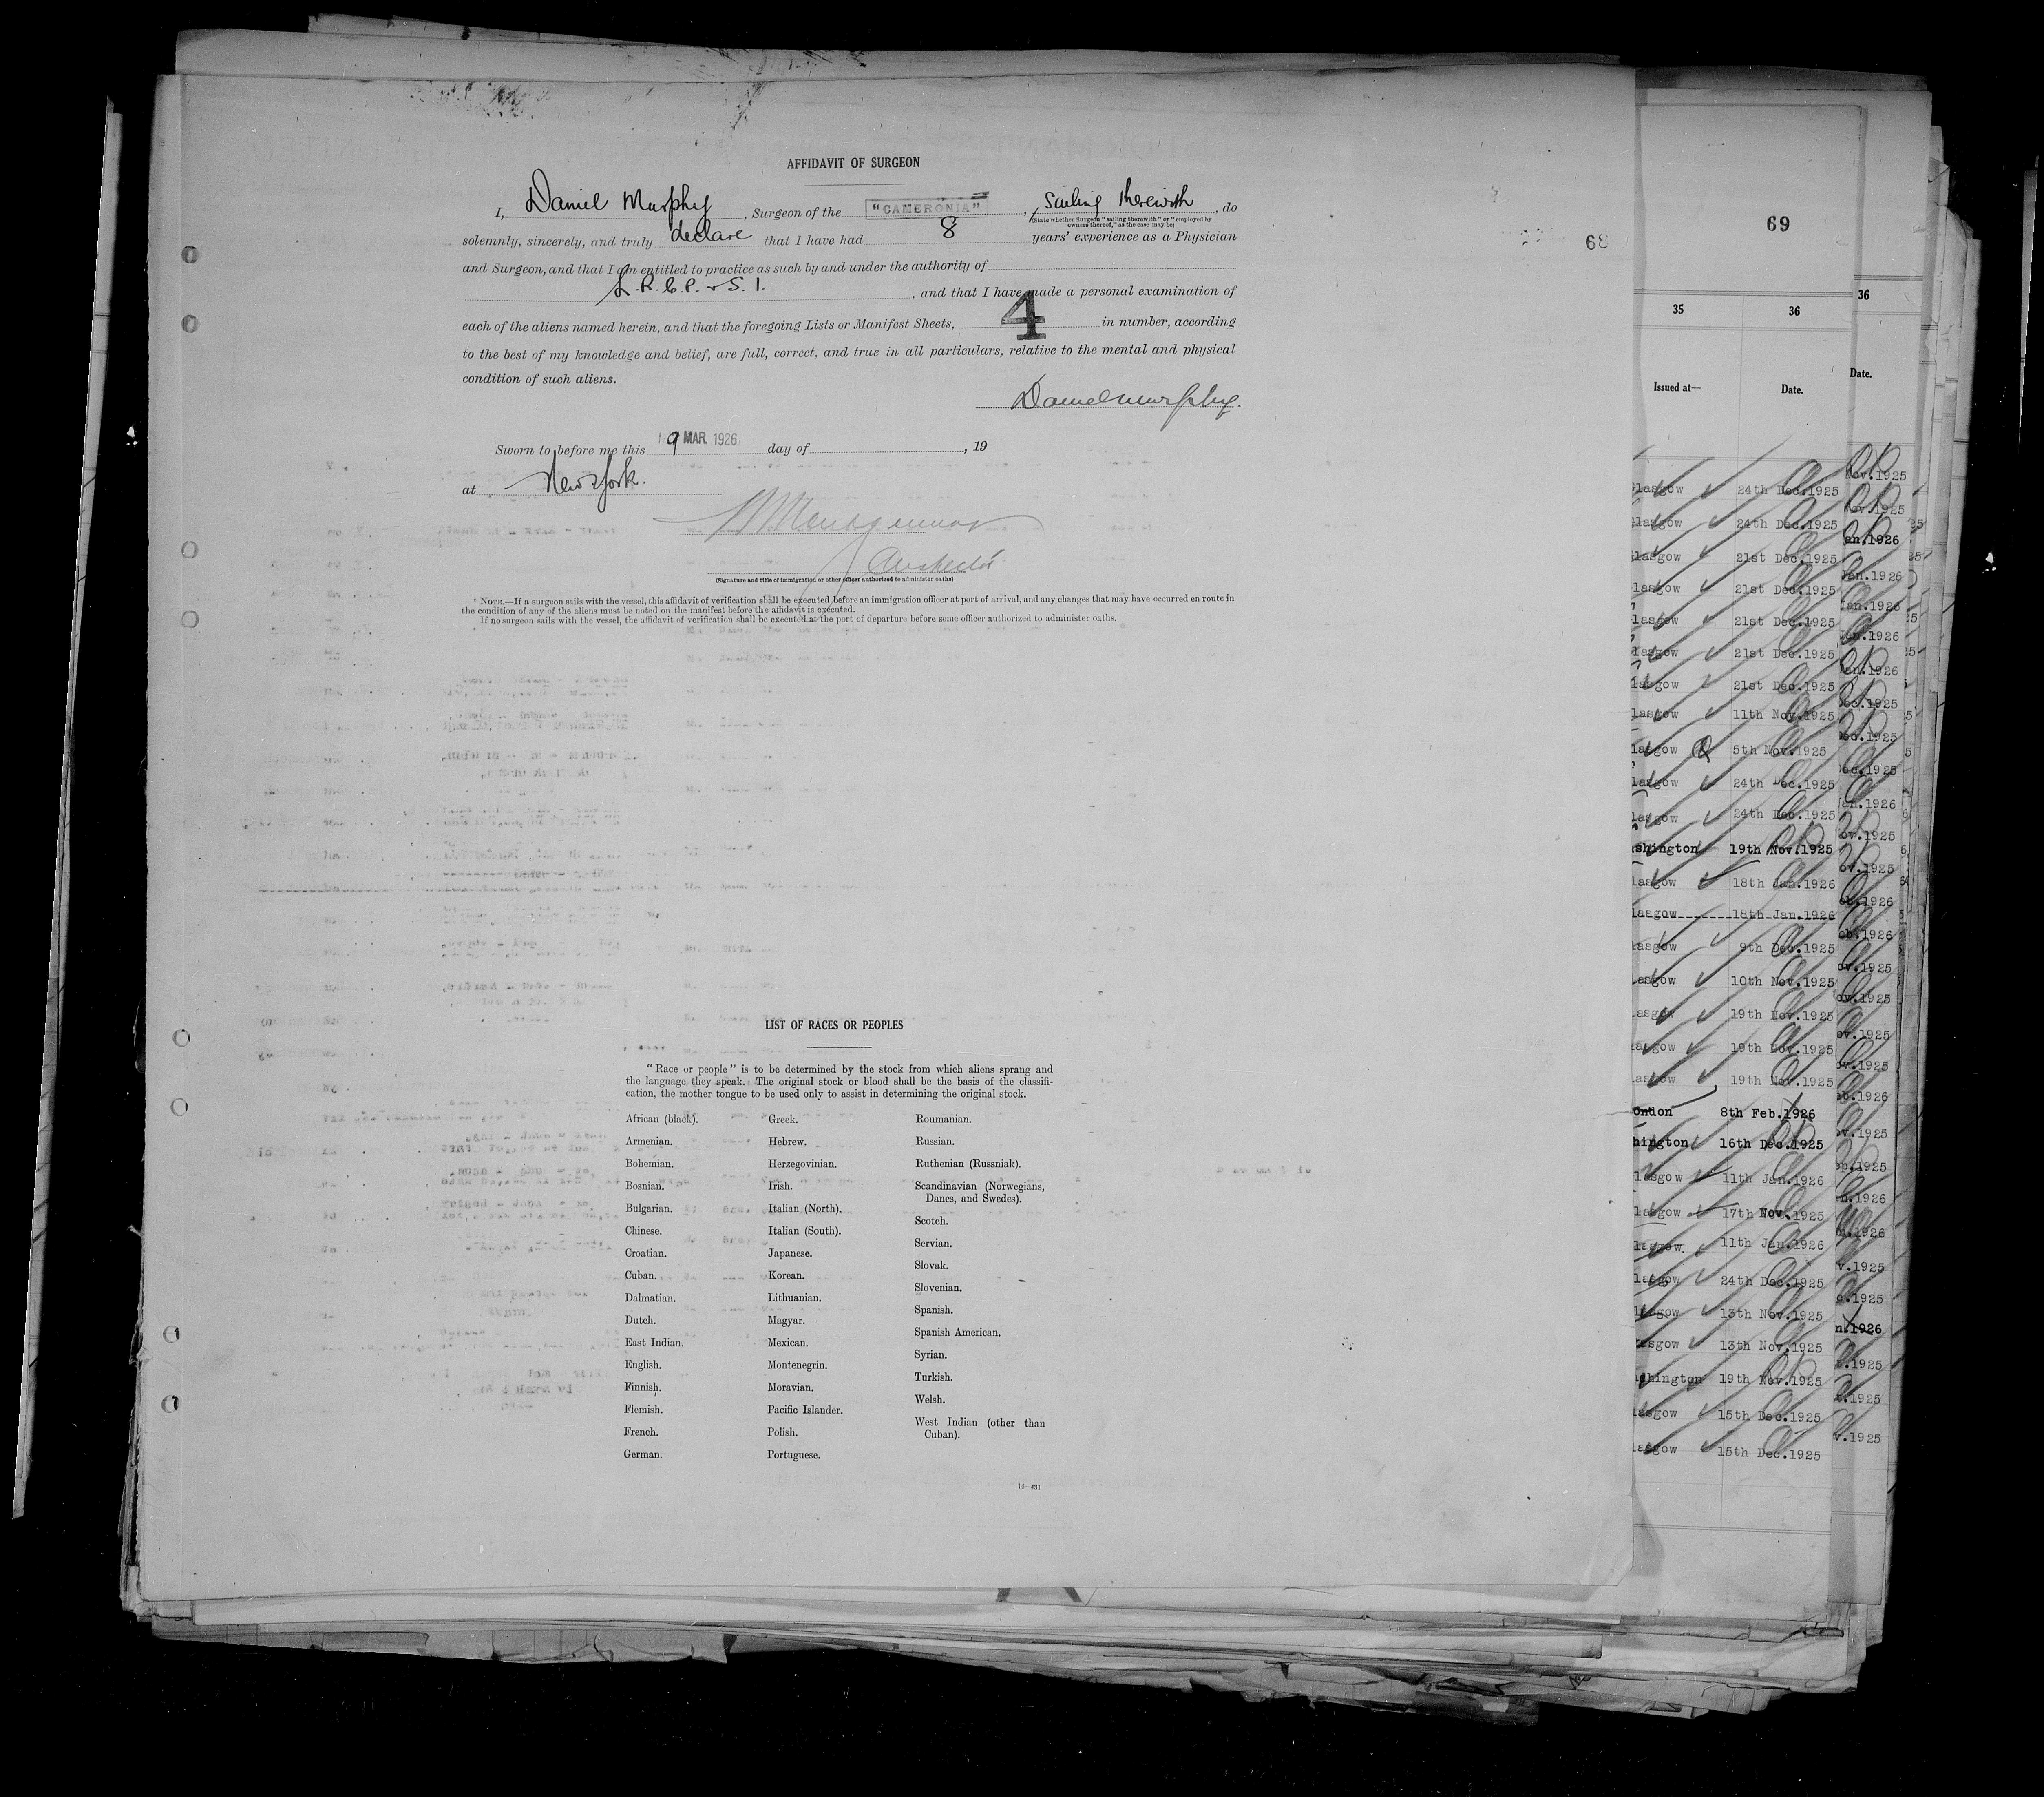 AFFIDAVIT OF SURGEON
I, Daniel Murphy, Surgeon of the "CAMERONIA", sailing therewith, do
(State whether Surgeon "sailing therewith" or "employed by
owners thereof," as the case may be)
solemnly, sincerely, and truly declare that I have had 8 years' experience as a Physician
and Surgeon, and that I am entitled to practice as such by and under the authority of
L.R.C.P. & S.I., and that I have made a personal examination of
each of the aliens named herein, and that the foregoing Lists or Manifest Sheets, 4 in number, according
to the best of my knowledge and belief, are full, correct, and true in all particulars, relative to the mental and physical
condition of such aliens.
Daniel Murphy.
Sworn to before me this 9 MAR. 1926 day of , 19
at New York.
(Signature and title of immigration or other officer authorized to administer oaths)
NOTE.—If a surgeon sails with the vessel, this affidavit of verification shall be executed before an immigration officer at port of arrival, and any changes that may have occurred en route in
the condition of any of the aliens must be noted on the manifest before the affidavit is executed.
If no surgeon sails with the vessel, the affidavit of verification shall be executed at the port of departure before some officer authorized to administer oaths.
LIST OF RACES OR PEOPLES
"Race or people" is to be determined by the stock from which aliens sprang and
the language they speak. The original stock or blood shall be the basis of the classifi-
cation, the mother tongue to be used only to assist in determining the original stock.
African (black).
Armenian.
Bohemian.
Bosnian.
Bulgarian.
Chinese.
Croatian.
Cuban.
Dalmatian.
Dutch.
East Indian.
English.
Finnish.
Flemish.
French.
German.
Greek.
Hebrew.
Herzegovinian.
Irish.
Italian (North).
Italian (South).
Japanese.
Korean.
Lithuanian.
Magyar.
Mexican.
Montenegrin.
Moravian.
Pacific Islander.
Polish.
Portuguese.
Roumanian.
Russian.
Ruthenian (Russniak).
Scandinavian (Norwegians,
Danes, and Swedes).
Scotch.
Servian.
Slovak.
Slovenian.
Spanish.
Spanish American.
Syrian.
Turkish.
Welsh.
West Indian (other than
Cuban).
68
69
35 36
Issued at— Date.
Glasgow 24th Dec.1925
lasgow 24th Dec.1925
lasgow 21st Dec.1925
lasgow 21st Dec.1925
lasgow 21st Dec.1925
lasgow 21st Dec.1925
lasgow 21st Dec.1925
lasgow 11th Nov.1925
lasgow 5th Nov.1925
lasgow 24th Dec.1925
lasgow 24th Dec.1925
shington 19th Nov.1925
lasgow 18th Jan.1926
lasgow 18th Jan.1926
lasgow 9th Dec.1925
lasgow 10th Nov.1925
lasgow 19th Nov.1925
lasgow 19th Nov.1925
lasgow 19th Nov.1925
ondon 8th Feb.1926
hington 16th Dec.1925
lasgow 11th Jan.1926
lasgow 17th Nov.1925
lasgow 11th Jan.1926
lasgow 24th Dec.1925
lasgow 13th Nov.1925
asgow 13th Nov.1925
shington 19th Nov.1925
asgow 15th Dec.1925
asgow 15th Dec.1925
36
Date.